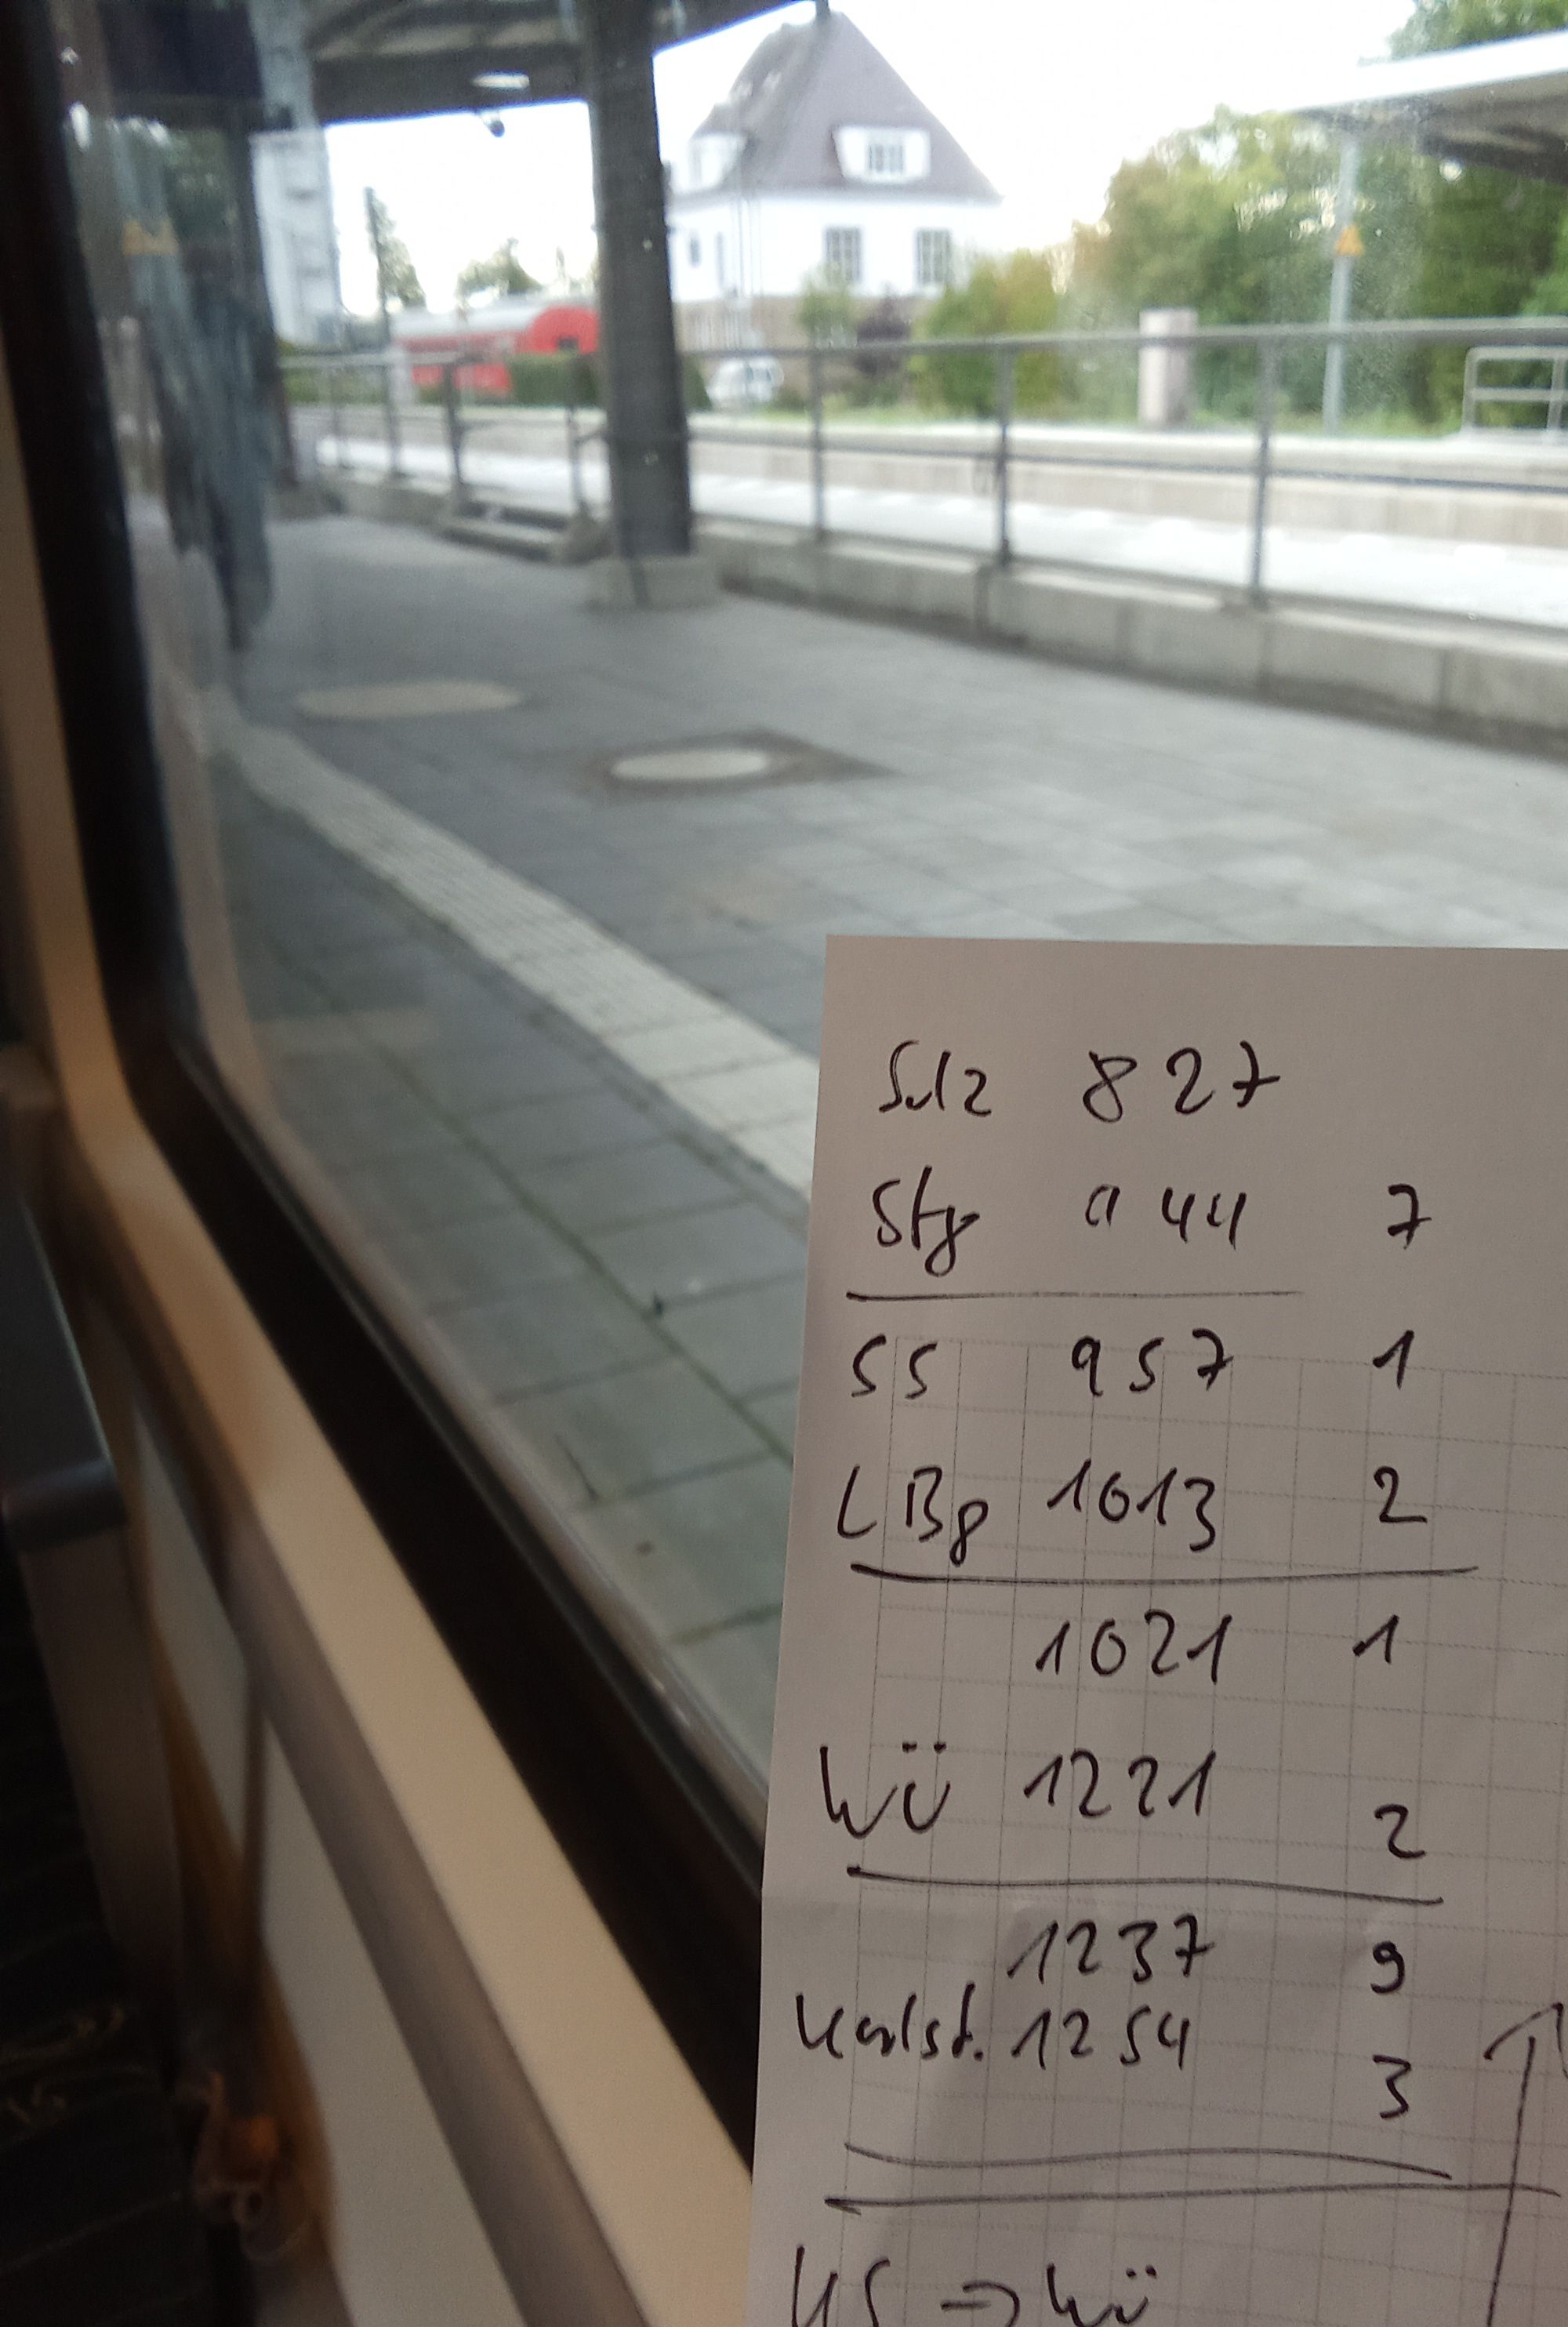 Sulz 827
Stg 944 7
SS 957 1
LBg 1013 2
1021 1
Wü 1221 2
1237 9
Karlst. 1254 3
KS → Wü